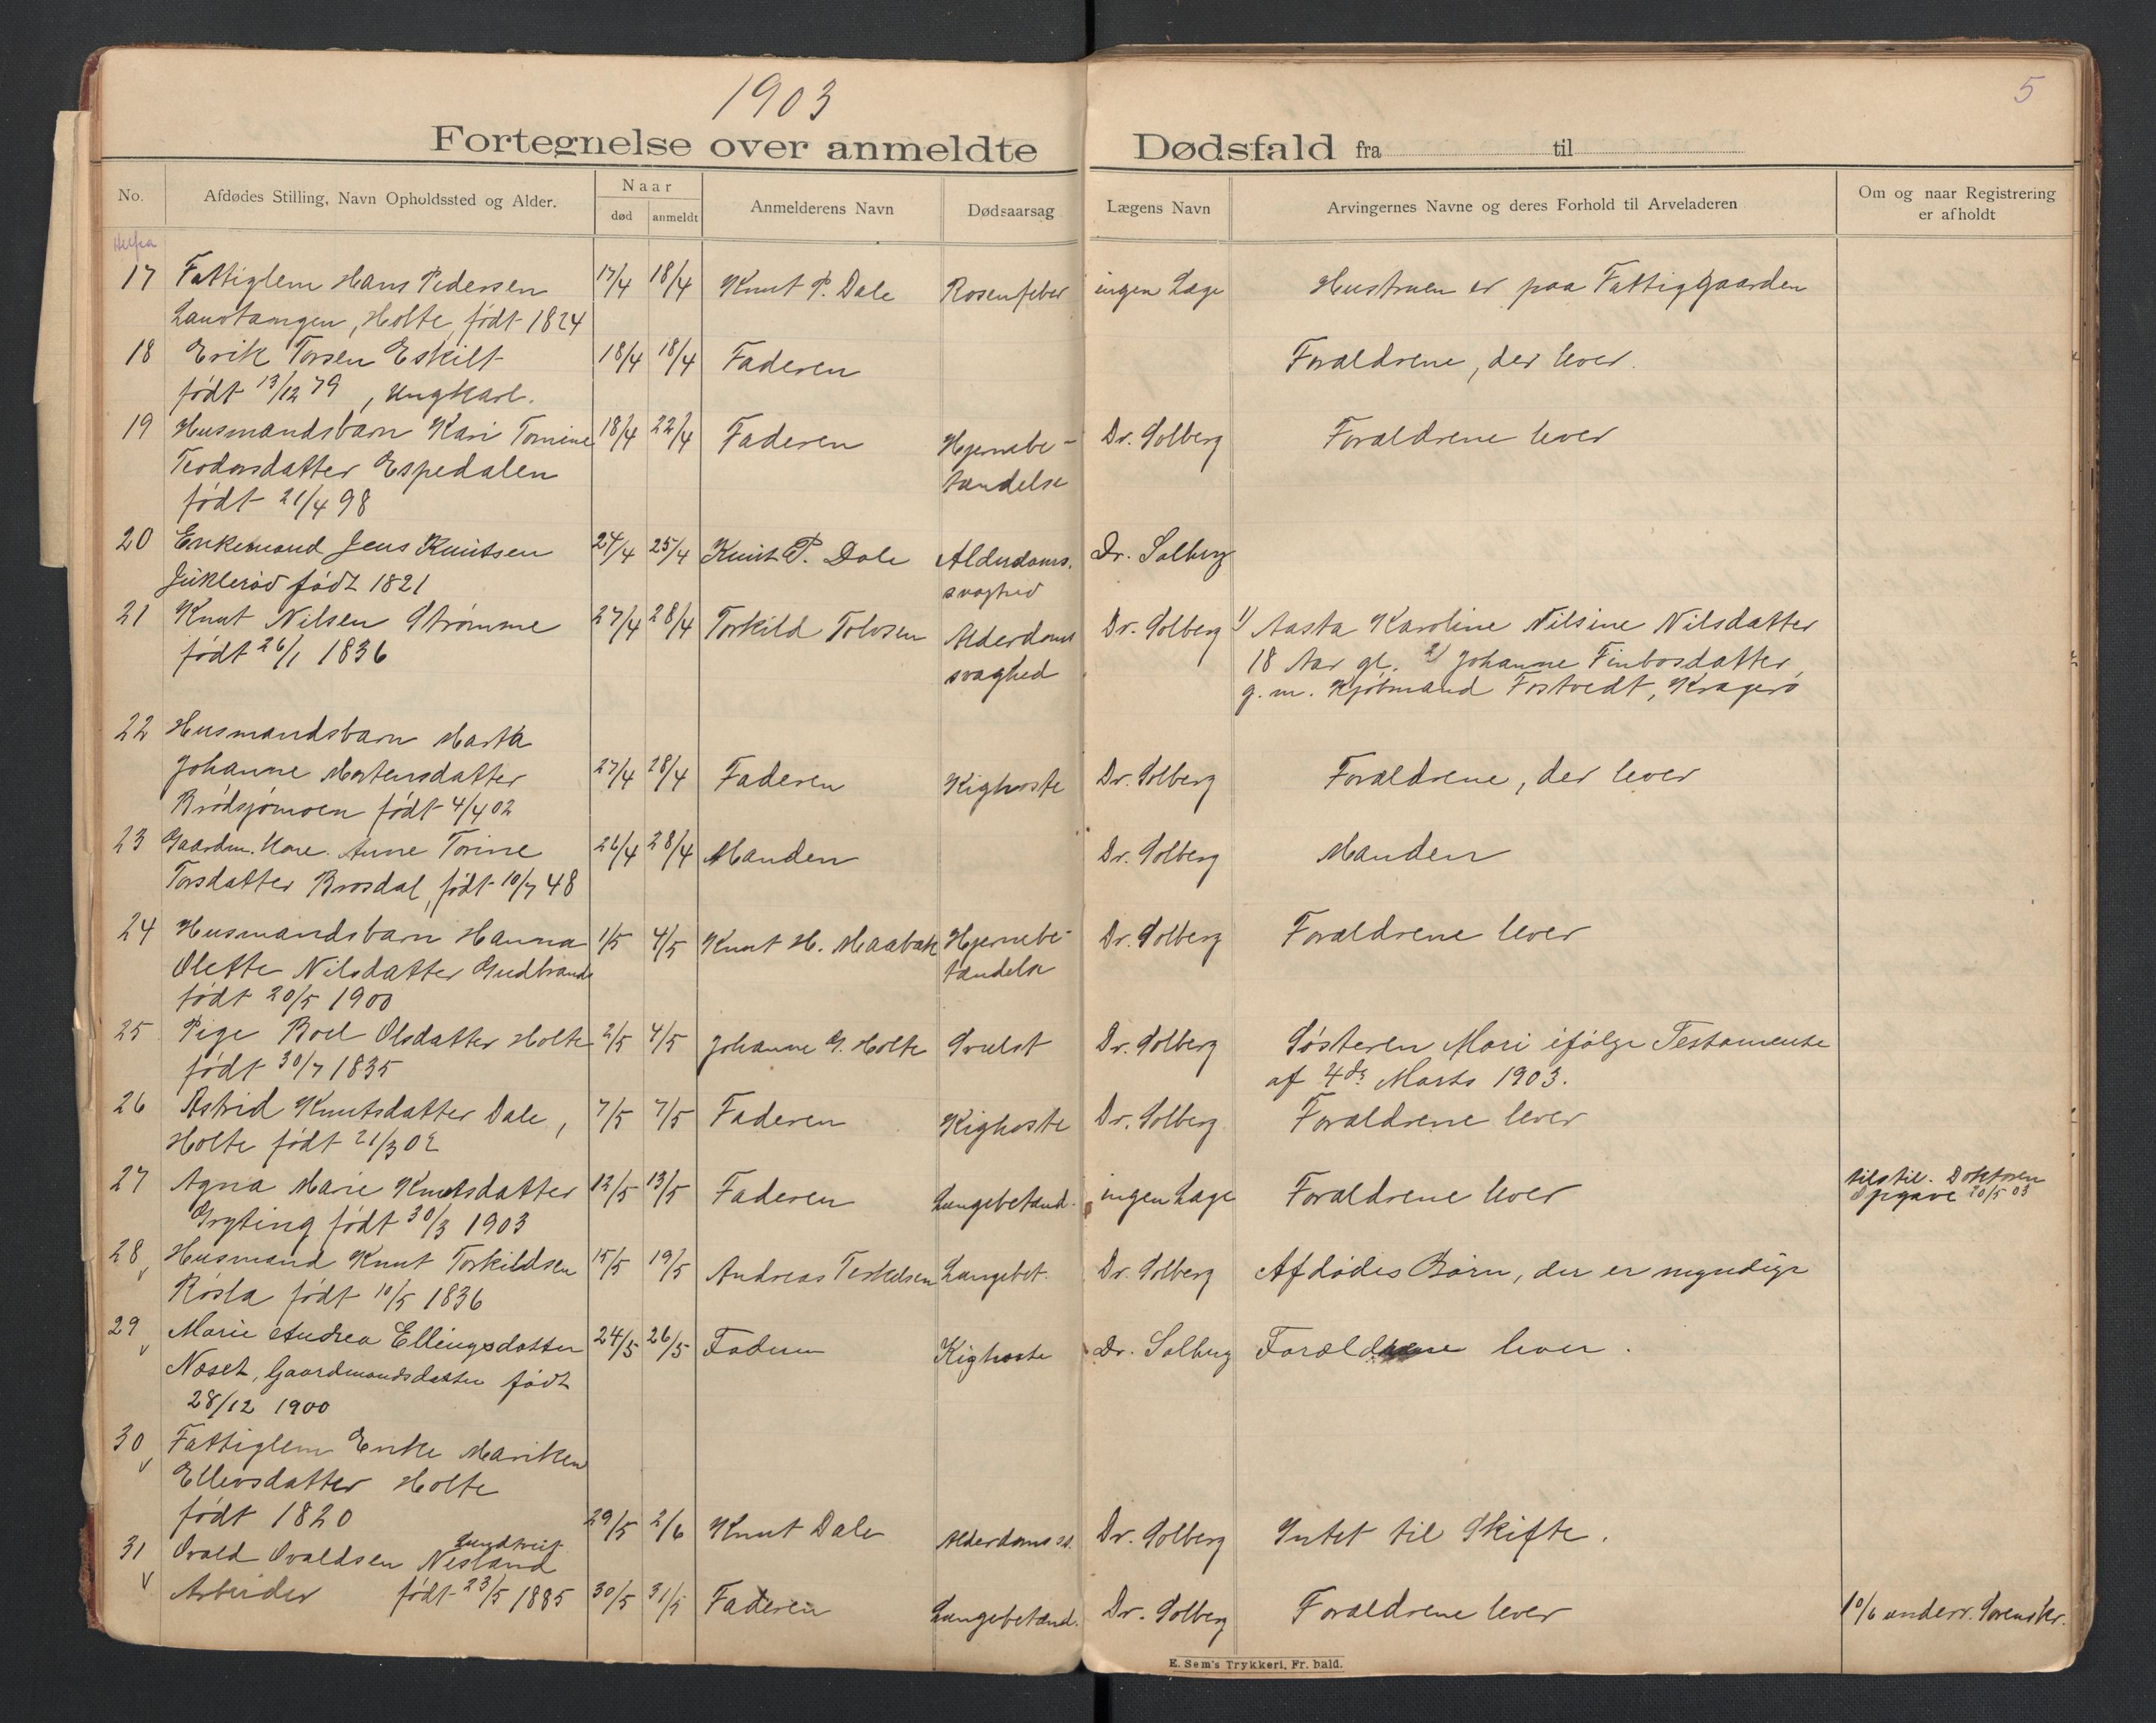 1903
5
Fortegnelse over anmeldte Dødsfald fra til
No.
Afdødes Stilling, Navn Opholdssted og Alder.
Naar
død
anmeldt
Anmelderens Navn
Dødsaarsag
Lægens Navn
Arvingernes Navne og deres Forhold til Arveladeren
Om og naar Registrering
er afholdt
17 Fattiglem Hans Pedersen 17/4 18/4 Knut P. Dale Rosenfeber ingen Læge Hustruen er paa Fattiggaarden
Holte, født 1824
18 Erik Torsen Eskilt 18/4 18/4 Faderen Forældrene, der lever.
født 13/12 79, Ungkarl.
19 Husmandsbarn Kari Tomine 18/4 22/4 Faderen Hjernebe- Dr. Solberg Forældrene lever
Teodorsdatter Espedalen tændelse
født 21/4 98
20 Enkemand Jens Knutsen 24/4 25/4 Knut P. Dale Alderdoms. Dr. Solberg
Juklerød født 1821 svaghed
21 Knut Nilsen Strømme 27/4 28/4 Torkild Tolvsen Alderdoms Dr. Solberg 1) Aasta Karoline Nilsine Nilsdatter
født 26/1 1836 svaghed 18 Aar gl. 2) Johanne Finbosdatter,
g. m. Kjøbmand Fostvedt, Kragerø
22 Husmandsbarn Marta
Johanne Mortensdatter 27/4 28/4 Faderen Kighoste Dr. Solberg Forældrene, der lever
Brødsjømoen født 4/4 02
23 Gaardm. Kone. Anne Torine 26/4 28/4 Manden Dr. Solberg Manden
Torsdatter Brosdal, født 10/7 48
24 Husmandsbarn Hanna 1/5 4/5 Knut H. Maabæk Hjernebe- Dr. Solberg Forældrene lever
Olette Nilsdatter Gudbrands tændelse
født 20/5 1900
25 Pige Boel Olsdatter Holte 2/5 4/5 Johanne G. Holte Svulst Dr. Solberg Søsteren Mari ifølge Testamente
født 30/7 1835 af 4de Marts 1903.
26 Astrid Knutsdatter Dale, 7/5 7/5 Faderen Kighoste Dr. Solberg Forældrene lever
Holte født 21/3 02
27 Agna Marie Knutsdatter 12/5 13/5 Faderen Lungebetænd. ingen Læge Forældrene lever tilstil. Doktoren
Gryting født 30/3 1903 Opgave 20/5 03
28 Husmand Knut Torkildsen 15/5 19/5 Andreas Terkelsen Lungebet. Dr. Solberg Afdødes Børn, der er myndige
v Røsla født 10/5 1836
29 Marie Andrea Ellingsdatter 24/5 26/5 Faderen Kighoste Dr. Solberg Forældrene lever.
v Næset, Gaardmandsdatter født
28/12 1900
30 Fattiglem Enke Mariken
v Ellevsdatter Holte
født 1820 29/5 2/6 Knut Dale Alderdoms sv. Dr. Solberg Intet til Skifte.
31 Ovald Ovaldsen Nesland
v Arbeider født 23/5 1885 30/5 31/5 Faderen Lungebetænd. Dr. Solberg Forældrene lever 10/6 underr. Sorenskr.
E. Sem's Trykkeri, Fr. hald.